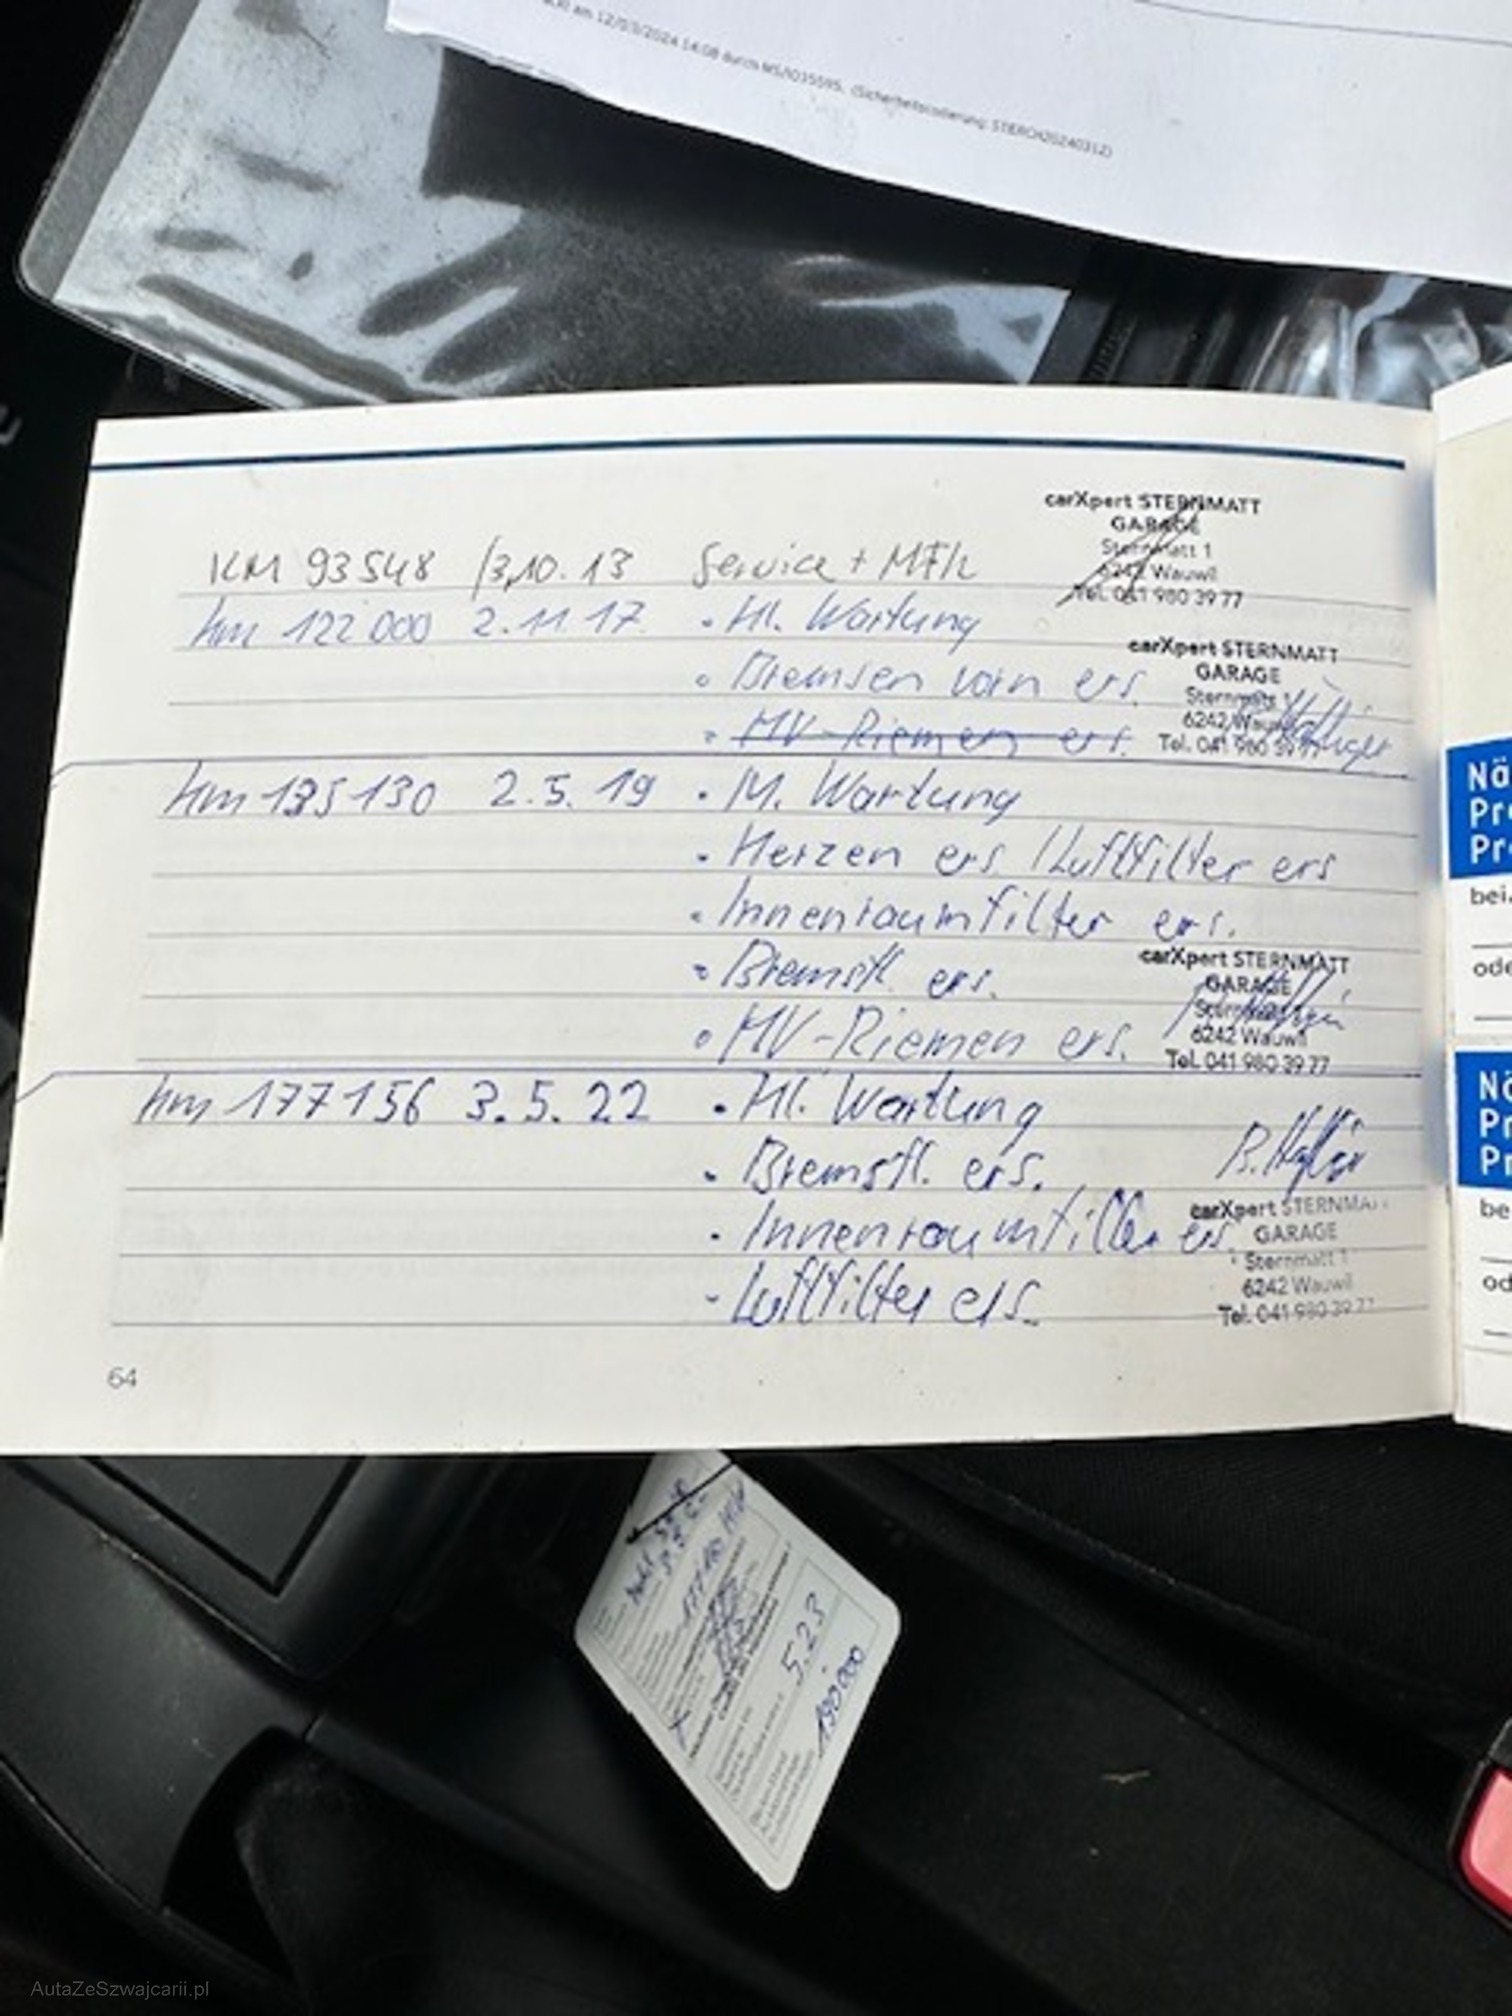 am 12/03/2024 14:08 durch MS/IO35595, (Sicherheitscodierung: STERCH20240312)
carXpert STERNMATT
GARAGE
Sternmatt 1
6242 Wauwil
Tel. 041 980 39 77
KM 93548 /3,10.13 Service + MFK
km 122 000 2.11.17 • Kl. Wartung
• Bremsen vorn ers.
• MV-Riemen ers.
carXpert STERNMATT
GARAGE
Sternmatt 1
6242 Wauwil
Tel. 041 980 39 77
km 135130 2.5.19 • M. Wartung
• Kerzen ers. / Luftfilter ers
• Innenraumfilter ers.
• Bremsfl. ers.
• MV-Riemen ers.
carXpert STERNMATT
GARAGE
Sternmatt 1
6242 Wauwil
Tel. 041 980 39 77
km 177156 3.5.22 • Kl. Wartung
• Bremsfl. ers.
• Innenraumfilter ers
- Luftfilter ers.
carXpert STERNMATT
GARAGE
Sternmatt 1
6242 Wauwil
Tel. 041 980 39 77
64
Nä
Pr
Pr
bei
ode
Nä
Pr
Pr
be
od
5.23
190'000
AutaZeSzwajcarii.pl